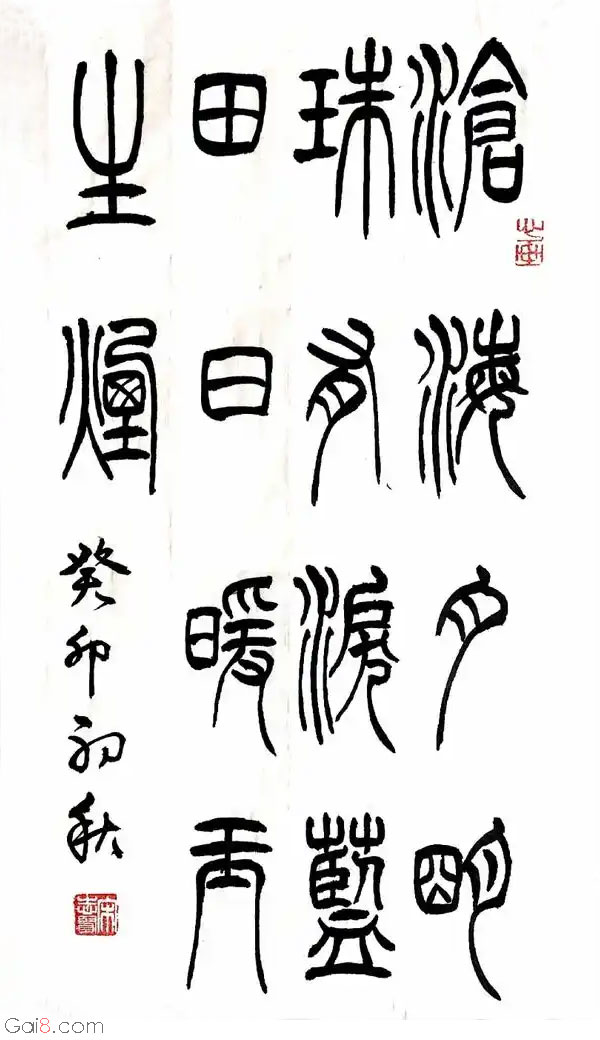 滄海月明
珠有淚藍
田日暖玉
生煙
癸卯初秋
Gai8.com